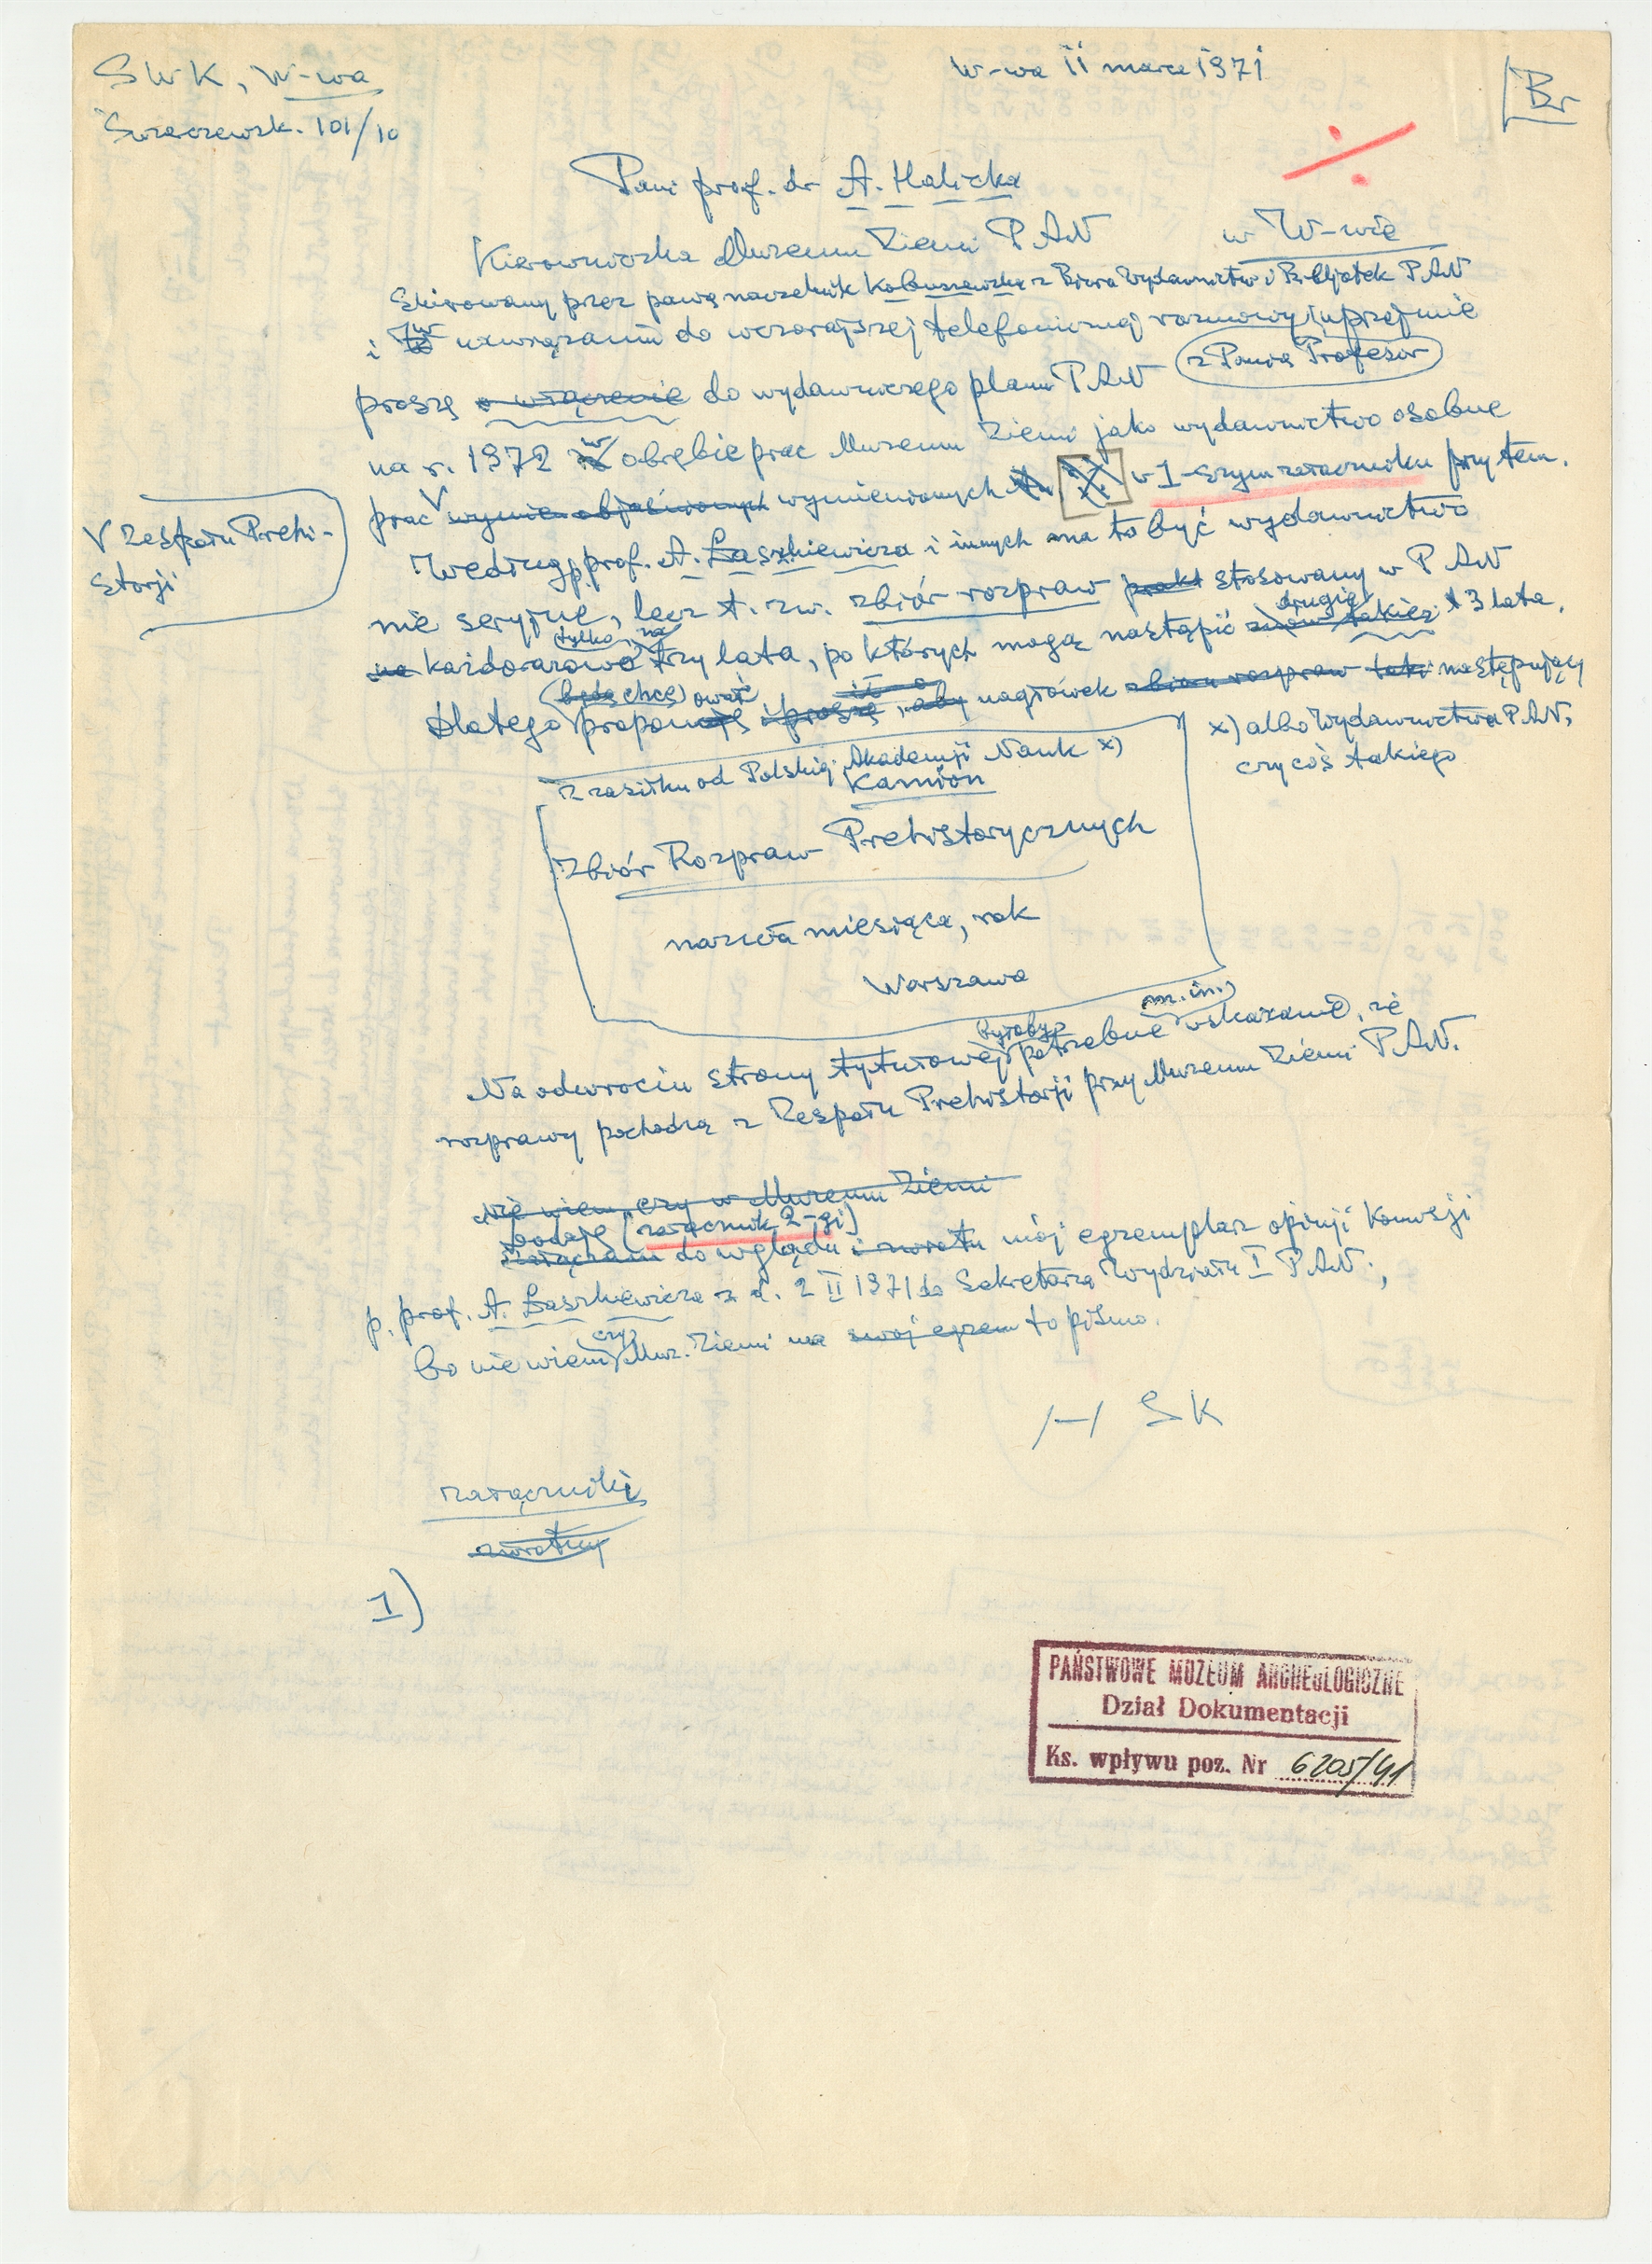 SWK, W-wa
Świerczewsk. 101/10
W-wa 11 marca 1971
Br
Pani prof. dr A. Halicka
Kierowniczka Muzeum Ziemi PAN w W-wie
Skierowany przez panią naczelnik Kobuszewską z Biura Wydawnictw i Bibljotek PAN
i w nawiązaniu do wczorajszej telefonicznej rozmowy z Panią Profesor uprzejmie
proszę o włączenie do wydawniczego planu PAN
na r. 1972 w obrębie prac Muzeum Ziemi jako wydawnictwo osobne
prac V wymienionych w 1-szym załączniku przy tem.
V Zespołu Prehi-
storji
Według p. prof. A. Laszkiewicza i innych ma to być wydawnictwo
nie seryjne, lecz t. zw. zbiór rozpraw stosowany w PAN
każdorazowo tylko na trzy lata, po których mogą nastąpić drugie 3 lata.
Dlatego będę chciał proponować nagłówek zbioru rozpraw następujący
x) albo Wydawnictwa PAN,
czy coś takiego
Z zasiłku od Polskiej Akademji Nauk x)
Kamion
Zbiór Rozpraw Prehistorycznych
nazwa miesiąca, rok
Warszawa
Na odwrociu strony tytułowej byłoby potrzebne m. in. wskazanie, że
rozprawy pochodzą z Zespołu Prehistorji przy Muzeum Ziemi PAN.
Nie wiem, czy w Muzeum Ziemi
Podaję (załącznik 2-gi)
Załączam do wglądu i zwrotu mój egzemplarz opinji Komisji
p. prof. A. Laszkiewicza z d. 2 II 1971 do Sekretarza Wydziału I PAN,
bo nie wiem czy Muz. Ziemi ma swój egzem to pismo.
/-/ SK
załączniki
zwrotny
1)
PAŃSTWOWE MUZEUM ARCHEOLOGICZNE
Dział Dokumentacji
Ks. wpływu poz. Nr 6205/41